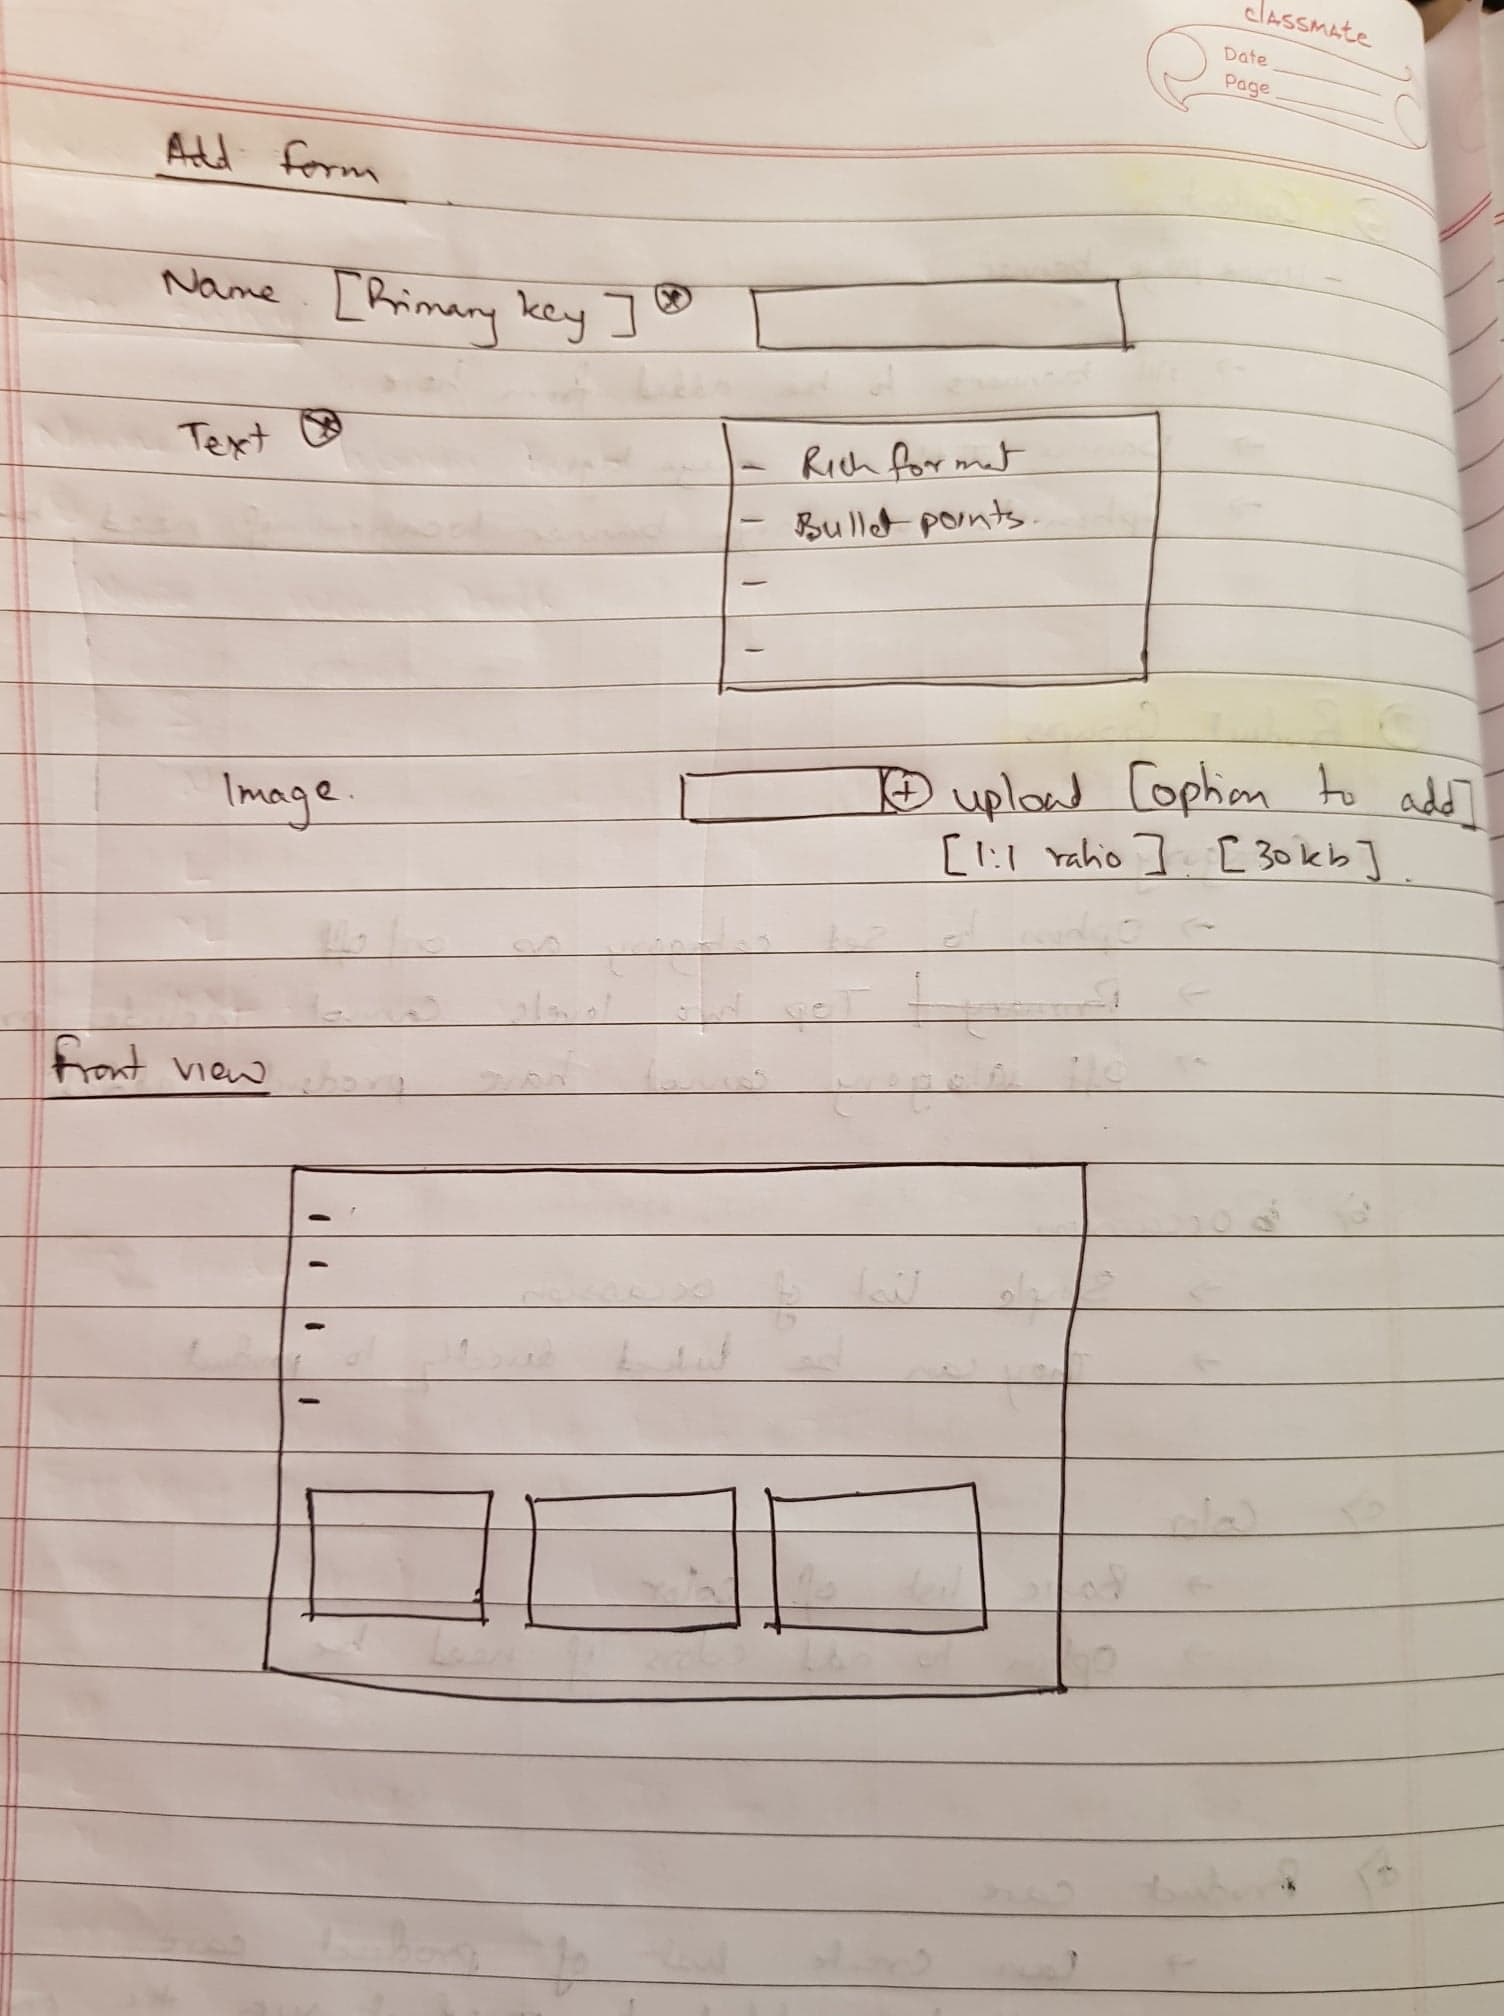 classmate
Date
Page
Add form
Name [Primary key] *
Text *
- Rich format
- Bullet points.
-
-
Image. + upload [option to add]
[1:1 ratio]. [30kb].
Front view
-
-
-
-